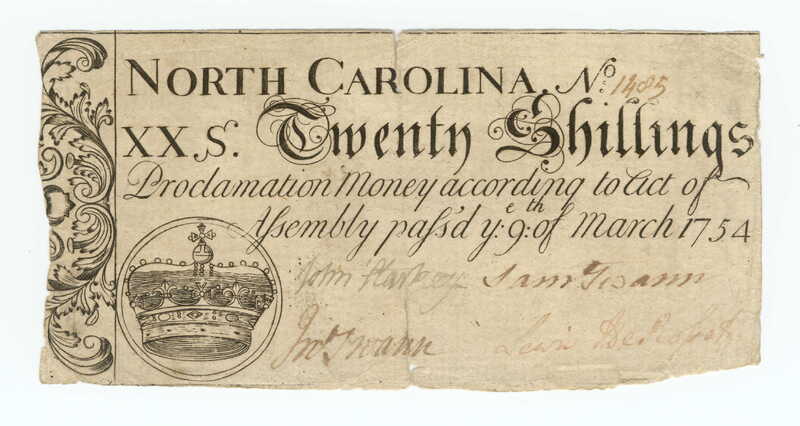 NORTH CAROLINA. No: 1485
XX S. Twenty Shillings
Proclamation Money according to Act of
Assembly pass'd ye: 9:th of March 1754
John Starkey Saml Swann
Jno. Swann Lewis DeRosset